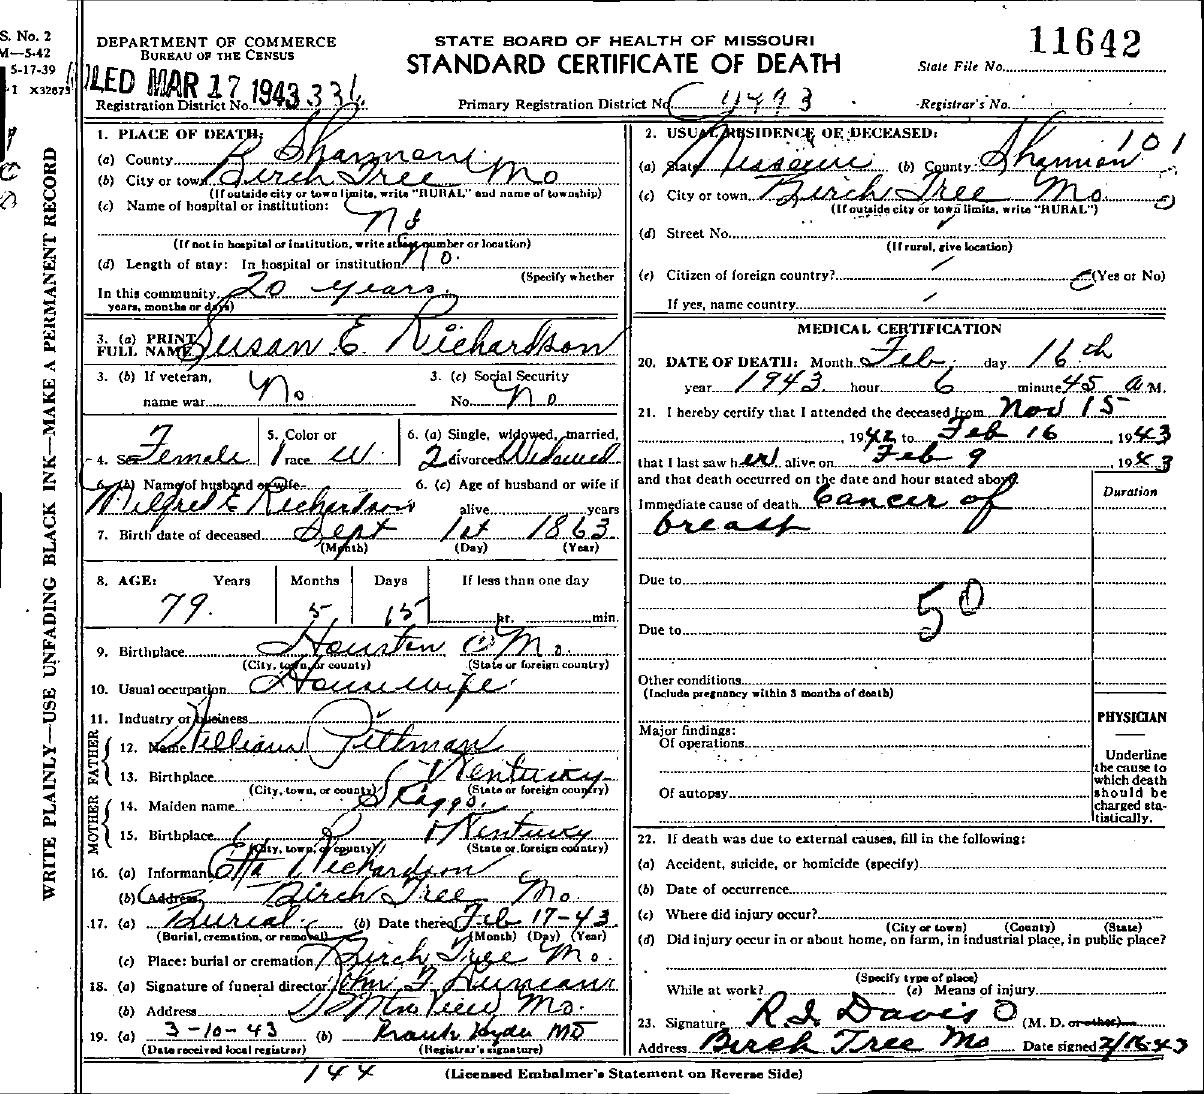 S. No. 2
M—5-42
5-17-39
-1 X32873
DEPARTMENT OF COMMERCE
BUREAU OF THE CENSUS
STATE BOARD OF HEALTH OF MISSOURI
STANDARD CERTIFICATE OF DEATH
11642
State File No.
LED MAR 17 1943 334
Registration District No.
Primary Registration District No. 4493
Registrar's No.
WRITE PLAINLY—USE UNFADING BLACK INK—MAKE A PERMANENT RECORD
1. PLACE OF DEATH:
(a) County Shannon
(b) City or town Birch Tree Mo
(If outside city or town limits, write "RURAL" and name of township)
(c) Name of hospital or institution:
No
(If not in hospital or institution, write street number or location)
(d) Length of stay: In hospital or institution No.
(Specify whether
In this community 20 years
years, months or days)
3. (a) PRINT FULL NAME Susan E Richardson
3. (b) If veteran, name war No
3. (c) Social Security No. No
4. Sex Female
5. Color or race W
6. (a) Single, widowed, married, divorced Widowed
2
6. (b) Name of husband or wife
E Richardson
6. (c) Age of husband or wife if alive years
7. Birth date of deceased Sept 1st 1863
(Month) (Day) (Year)
8. AGE: Years Months Days If less than one day
79 5 15 hr. min.
9. Birthplace Houston Mo.
(City, town, or county) (State or foreign country)
10. Usual occupation Housewife
11. Industry or business
FATHER
12. Name William Pittman
13. Birthplace Kentucky
(City, town, or county) (State or foreign country)
MOTHER
14. Maiden name Skaggs
15. Birthplace Kentucky
(City, town, or county) (State or foreign country)
16. (a) Informant Etta Richardson
(b) Address Birch Tree Mo.
17. (a) Burial (b) Date thereof Feb 17-43
(Burial, cremation, or removal) (Month) (Day) (Year)
(c) Place: burial or cremation Birch Tree Mo.
18. (a) Signature of funeral director John F Duncan
(b) Address Mtn View Mo.
19. (a) 3-10-43 (b) Frank Hyde MD
(Date received local registrar) (Registrar's signature)
144
2. USUAL RESIDENCE OF DECEASED:
101
(a) State Missouri (b) County Shannon
(c) City or town Birch Tree Mo
0
(If outside city or town limits, write "RURAL")
(d) Street No.
(If rural, give location)
(e) Citizen of foreign country? (Yes or No)
If yes, name country
MEDICAL CERTIFICATION
20. DATE OF DEATH: Month Feb. day 16th
year 1943 hour 6 minute 45 a M.
21. I hereby certify that I attended the deceased from Nov 15
1942 to Feb 16 1943
that I last saw her alive on Feb 9 1943
and that death occurred on the date and hour stated above.
Duration
Immediate cause of death Cancer of
breast
Due to
50
Due to
Other conditions
(Include pregnancy within 3 months of death)
Major findings:
Of operations
Of autopsy
PHYSICIAN
Underline
the cause to
which death
should be
charged sta-
tistically.
22. If death was due to external causes, fill in the following:
(a) Accident, suicide, or homicide (specify)
(b) Date of occurrence
(c) Where did injury occur?
(City or town) (County) (State)
(d) Did injury occur in or about home, on farm, in industrial place, in public place?
(Specify type of place)
While at work? (e) Means of injury
23. Signature R I Davis (M. D. or other)
Address Birch Tree Mo Date signed 2/16 43
(Licensed Embalmer's Statement on Reverse Side)